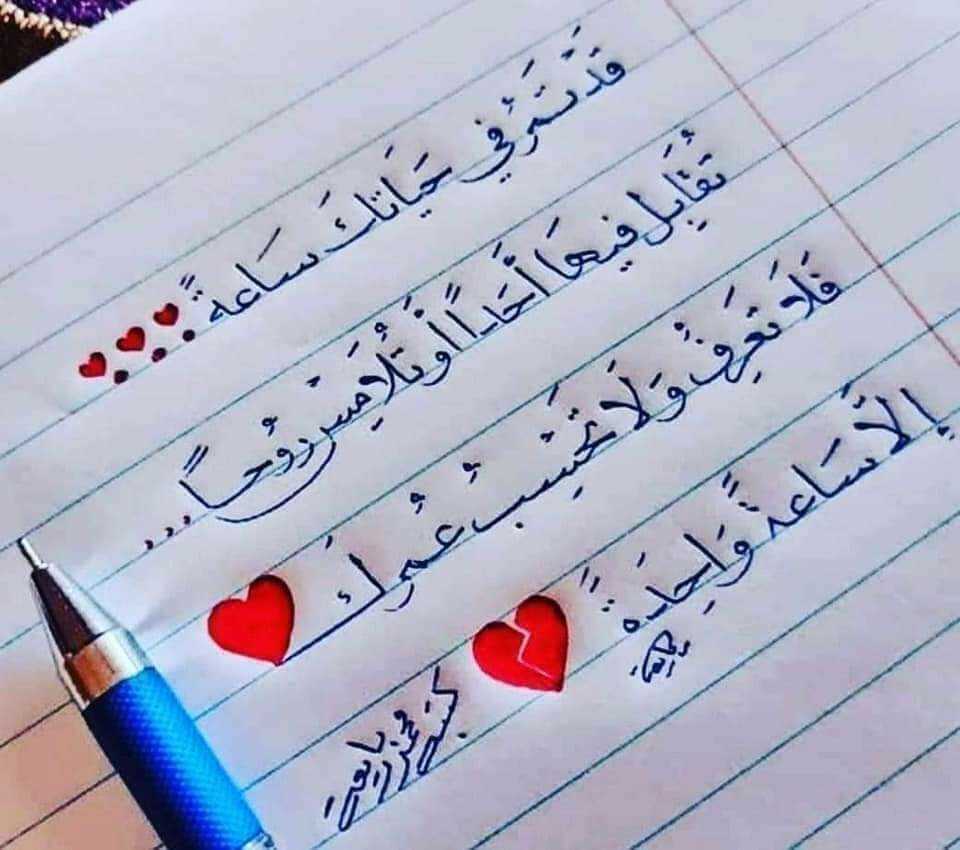 قَدْ تَمُرُّ فِي حَيَاتِكَ سَاعَةً...
تُقَابِلُ فِيهَا أَحَدًا أَوْ تُلَامِسُ رُوحًا...
فَلَا تَعْرِفُ وَلَا تَحْسِبُ عُمْرَكَ
إِلَّا سَاعَةً وَاحِدَةً